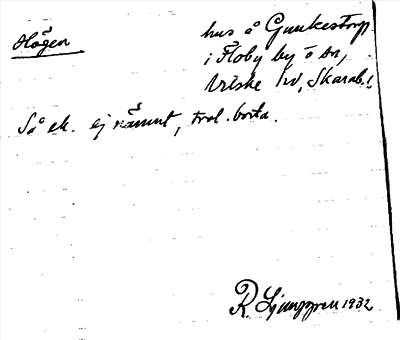 Högen
hus å Gunkestorp
i Floby by o sn,
Vilske hd, Skarab.l.
Så ek. ej nämnt, trol. borta.
R. Ljunggren 1932